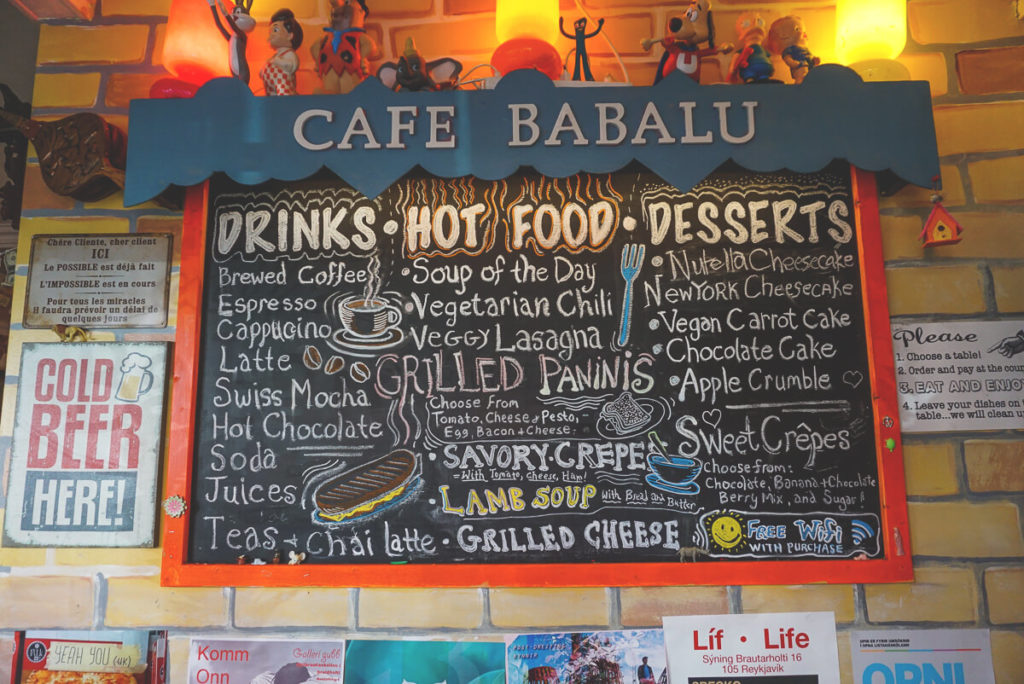 CAFE BABALU
DRINKS • HOT FOOD • DESSERTS
Brewed Coffee
Espresso
Cappucino
Latte
Swiss Mocha
Hot Chocolate
Soda
Juices
Teas + Chai latte •
• Soup of the Day
• Vegetarian Chili
• Veggy Lasagna
GRILLED PANINIS
Choose From
Tomato, Cheese & Pesto, -
Egg, Bacon + Cheese,
• SAVORY CREPE
- With Tomato, Cheese, Ham!
• LAMB SOUP with Bread and Butter
• GRILLED CHEESE
• Nutella Cheesecake
New York Cheesecake
• Vegan Carrot Cake
Chocolate Cake
• Apple Crumble
Sweet Crêpes
Choose from:
Chocolate, Banana + Chocolate
Berry Mix, and Sugar!
FREE WiFi
WITH PURCHASE
Chère Cliente, cher client
ICI
Le POSSIBLE est déjà fait
L'IMPOSSIBLE est en cours
Pour tous les miracles
Il faudra prévoir un délai de
quelques jours
COLD
BEER
HERE!
Please
1. Choose a table!
2. Order and pay at the cou
3. EAT AND ENJOY
4. Leave your dishes on
table...we will clean u
YEAH YOU (UK)
Komm
Onn
Galleri gull
Líf • Life
Sýning Brautarholti 16
105 Reykjavik
OPNI